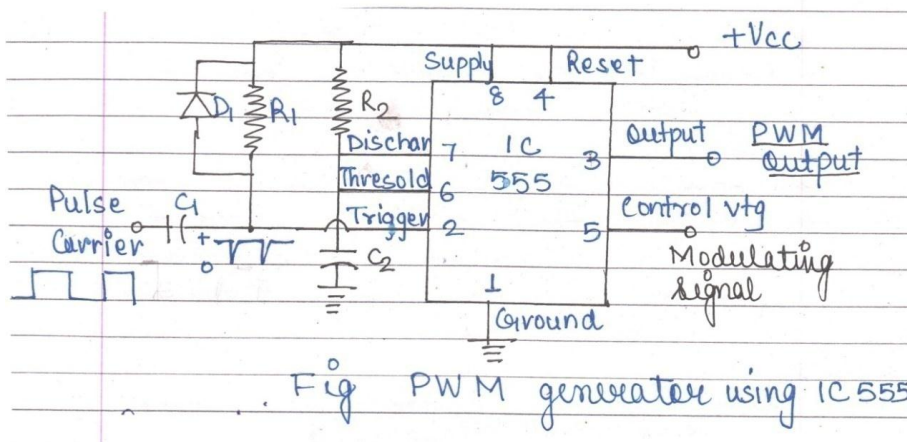 +Vcc
Supply Reset
8 4
D1 R1 R2
Dischar 7 IC 3 Output PWM Output
Thresold 6 555
Pulse Carrier C1 Trigger 2 5 Control vtg
+
o
C2
Modulating
Signal
1
Ground
Fig PWM generator using IC 555